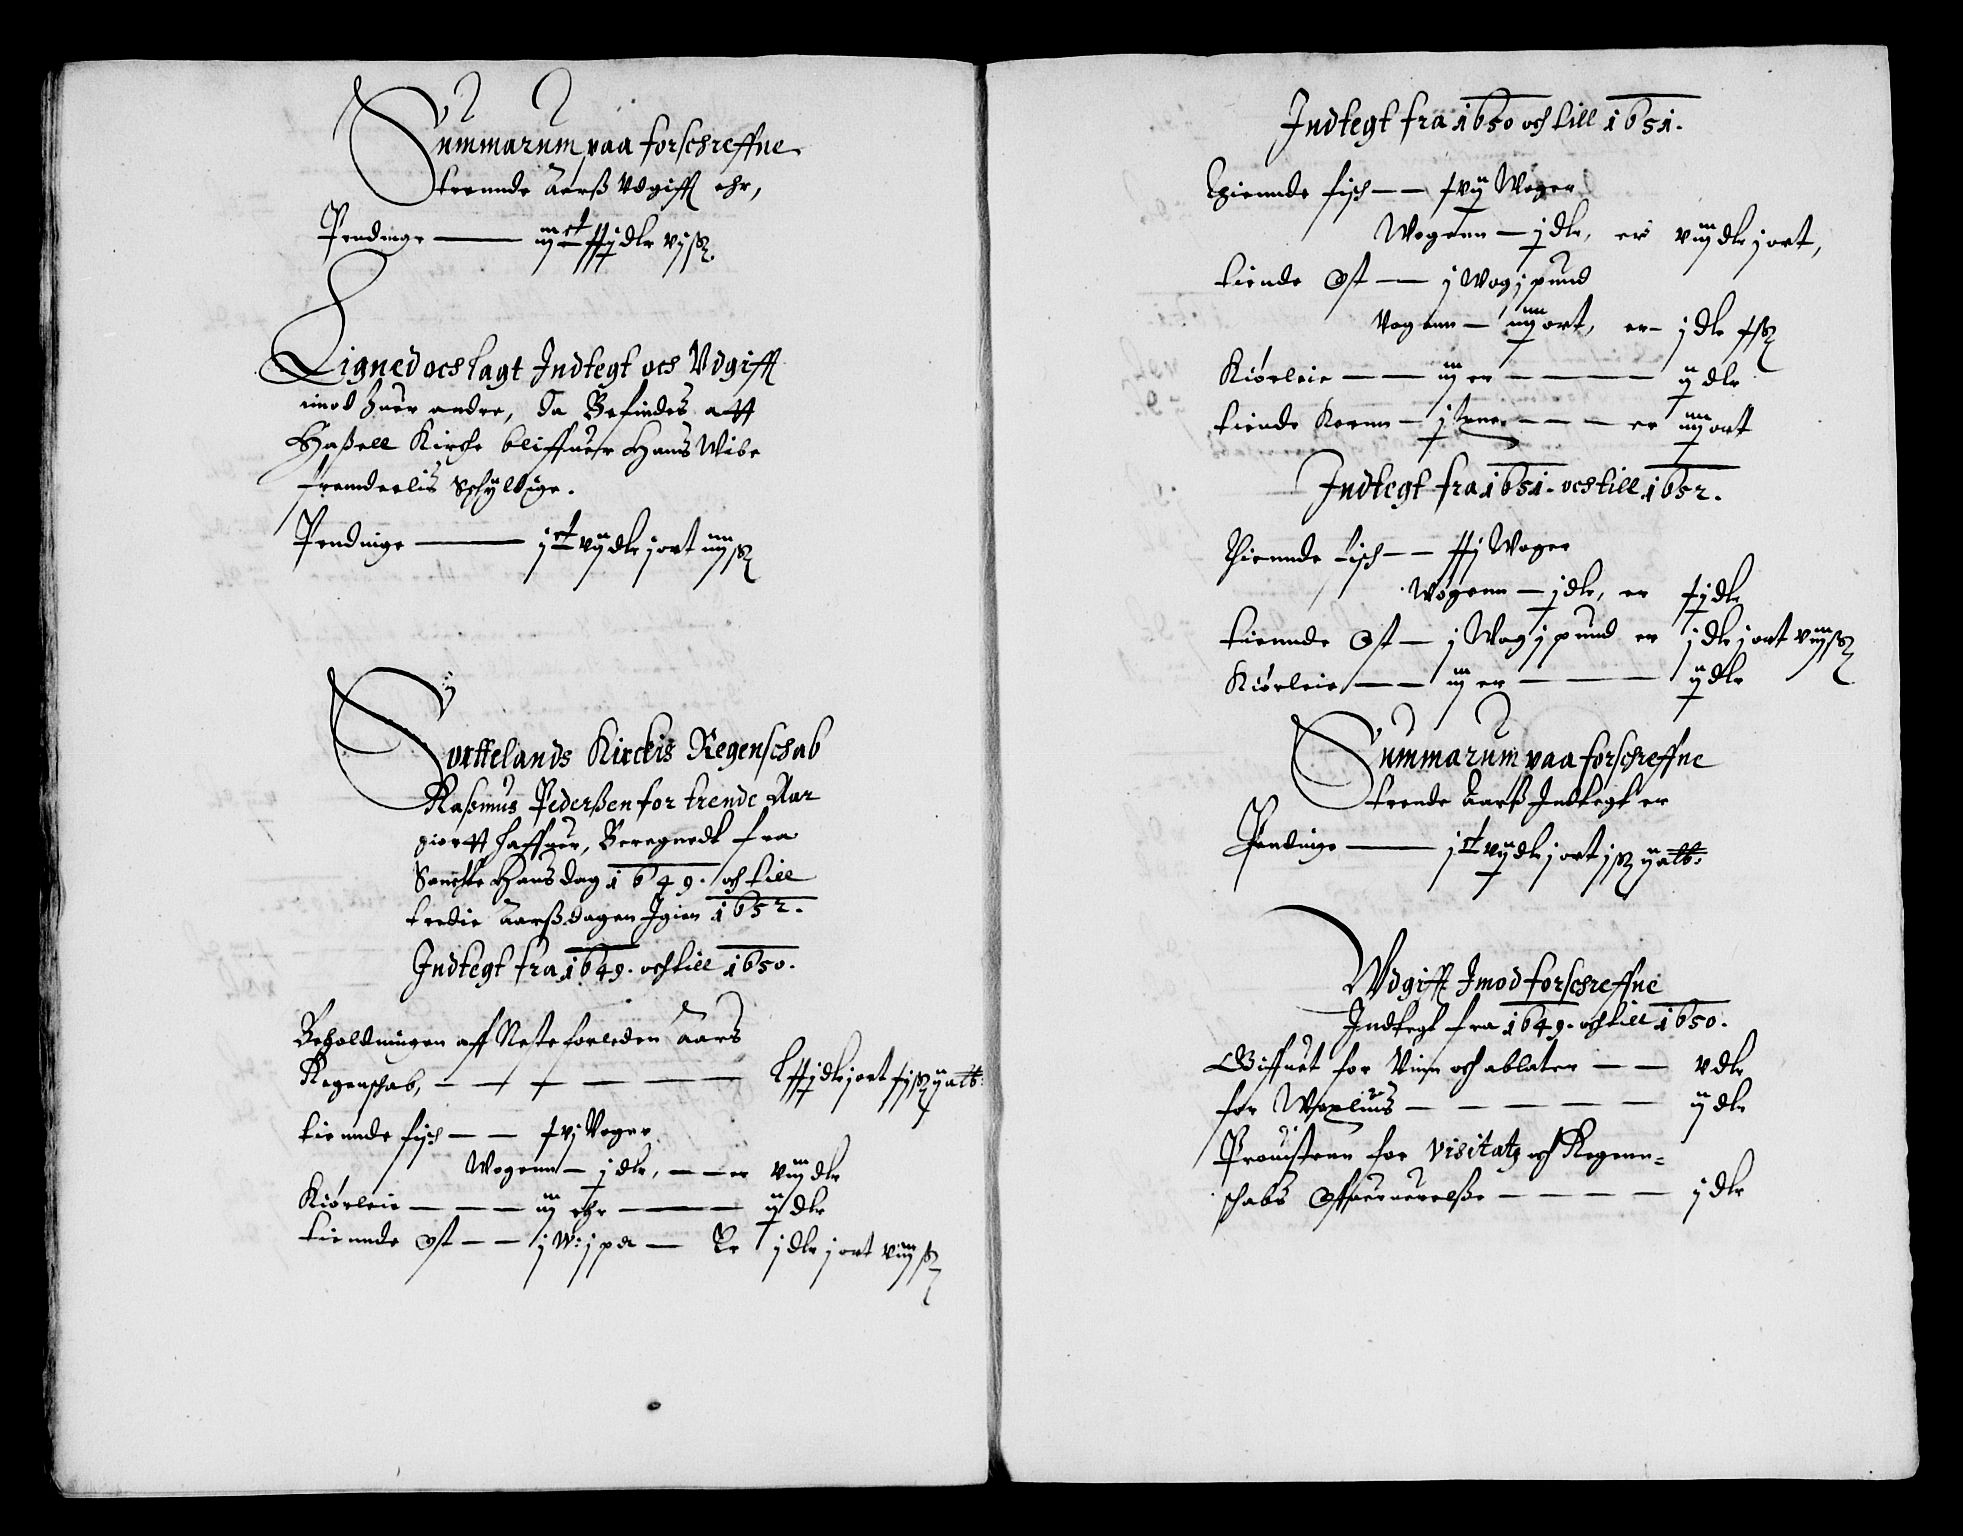 Summarum paa forschreffne
trennde Aarß Vdgifft ehr,
Pendinge — iij ct xxj dlr vj ß.
Ligned och lagt Indtegt och Vdgifft
imod huer andre, Da Befindes att
Haßell Kirche bliffuer Hans Wibe
fremdeelis Schyldige.
Pendinge — j ct vij dlr j ort iiij ß
Sorttelands Kirckis Regenschab
Rasmus Pederßen for trende Aar
giortt haffuer, Beregnedt fra
Sancte Hans dag 1649. och till
tredie Aarßdagen Igien 1652.
Indtegt fra 1649. och till 1650.
Beholdningen aff Neste forleden Aars
Regenschab, — — — Lxxj dlr j ort xj ß ij alb:
tiennde fisch — — xvj Voger
Wogenn — j dlr, — — er viij dlr
Kiørleie — — — iij ehr — — ij dlr
tiennde Ost — — j W: j pd — Er j dlr j ort viij ß
Indtegt fra 1650 och till 1651.
Thiennde fisch — — xvij Woger
Wogenn — j dlr, er viij dlr j ort,
tiende Ost — j Wog j pund
Vogenn — iiij ort, er — j dlr x ß
Kiørleie — — iij er — — — ij dlr
tiende Kornn — j tønne — — — er iiij ort
Indtegt fra 1651. och till 1652.
Thiennde fisch — — xxj Woger
Wogenn — j dlr, er xj dlr
tiennde Ost — j Wog j pund er j dlr j ort viij ß
Kiørleie — — iij er — — — ij dlr
Summarum paa forschreffne
trende Aarß Indtegt er
Pendinge — j ct vij dlr j ort j ß ij alb:
Vdgifft Imod forschreffne
Indtegt fra 1649. och till 1650.
Giffuet for Viin och ablater — — v dlr
for Woxlius — — — — — ij dlr
Prouistenn for Visitatz och Regenn-
schabs Offueruerelße — — — — j dlr